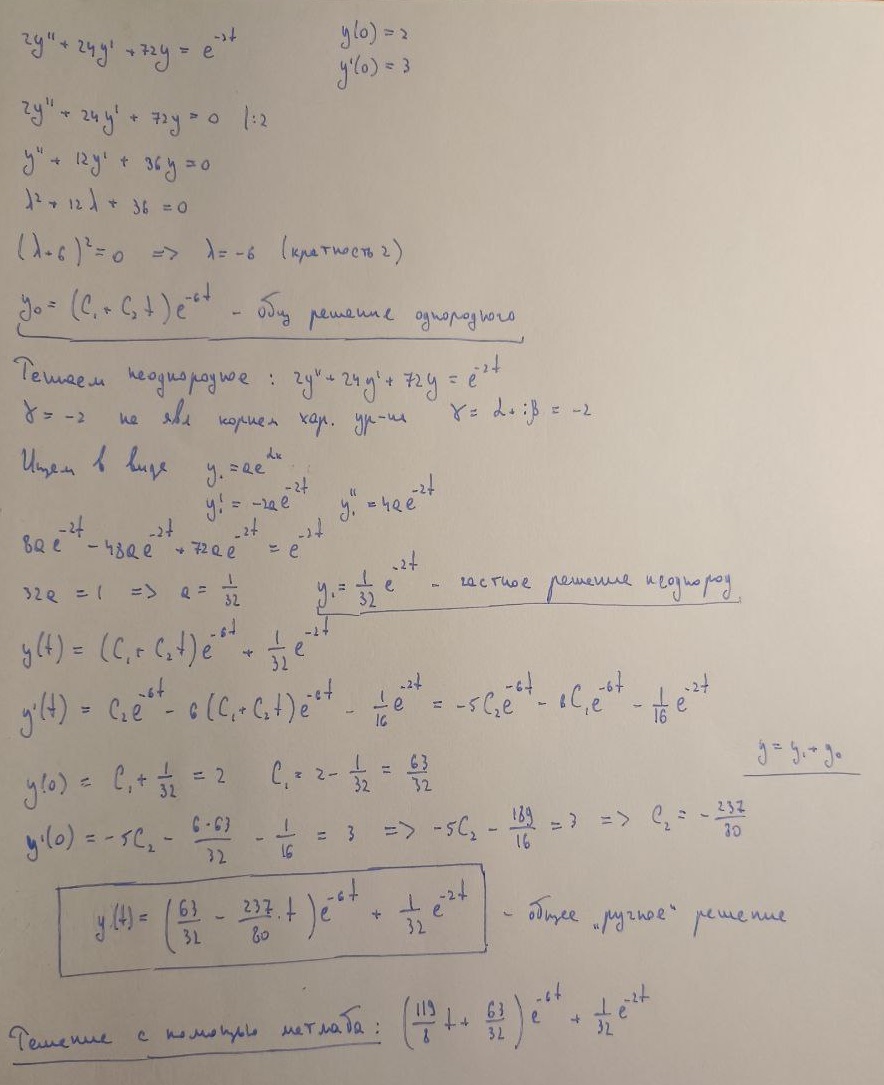 2y'' + 24y' + 72y = e^{-2t}    y(0) = 2
y'(0) = 3
2y'' + 24y' + 72y = 0  |:2
y'' + 12y' + 36y = 0
λ² + 12λ + 36 = 0
(λ+6)² = 0 => λ = -6 (кратность 2)
y₀ = (C₁ + C₂t)e^{-6t} - общ решение однородного
Решаем неоднородное : 2y'' + 24y' + 72y = e^{-2t}
γ = -2 не явл корнем хар. ур-ия  γ = α + iβ = -2
Ищем в виде y₁ = ae^{αx}
y₁' = -2ae^{-2t}  y₁'' = 4ae^{-2t}
8ae^{-2t} - 48ae^{-2t} + 72ae^{-2t} = e^{-2t}
32a = 1 => a = 1/32  y₁ = 1/32 e^{-2t} - частное решение неоднород
y(t) = (C₁ + C₂t)e^{-6t} + 1/32 e^{-2t}
y'(t) = C₂e^{-6t} - 6(C₁ + C₂t)e^{-6t} - 1/16 e^{-2t} = -5C₂e^{-6t} - 6C₁e^{-6t} - 1/16 e^{-2t}
y = y₁ + y₀
y(0) = C₁ + 1/32 = 2  C₁ = 2 - 1/32 = 63/32
y'(0) = -5C₂ - 6·63/32 - 1/16 = 3 => -5C₂ - 189/16 = 3 => C₂ = -237/80
y(t) = (63/32 - 237/80 · t)e^{-6t} + 1/32 e^{-2t} - общее „ручное“ решение
Решение с помощью метлаба: (119/8 t + 63/32)e^{-6t} + 1/32 e^{-2t}